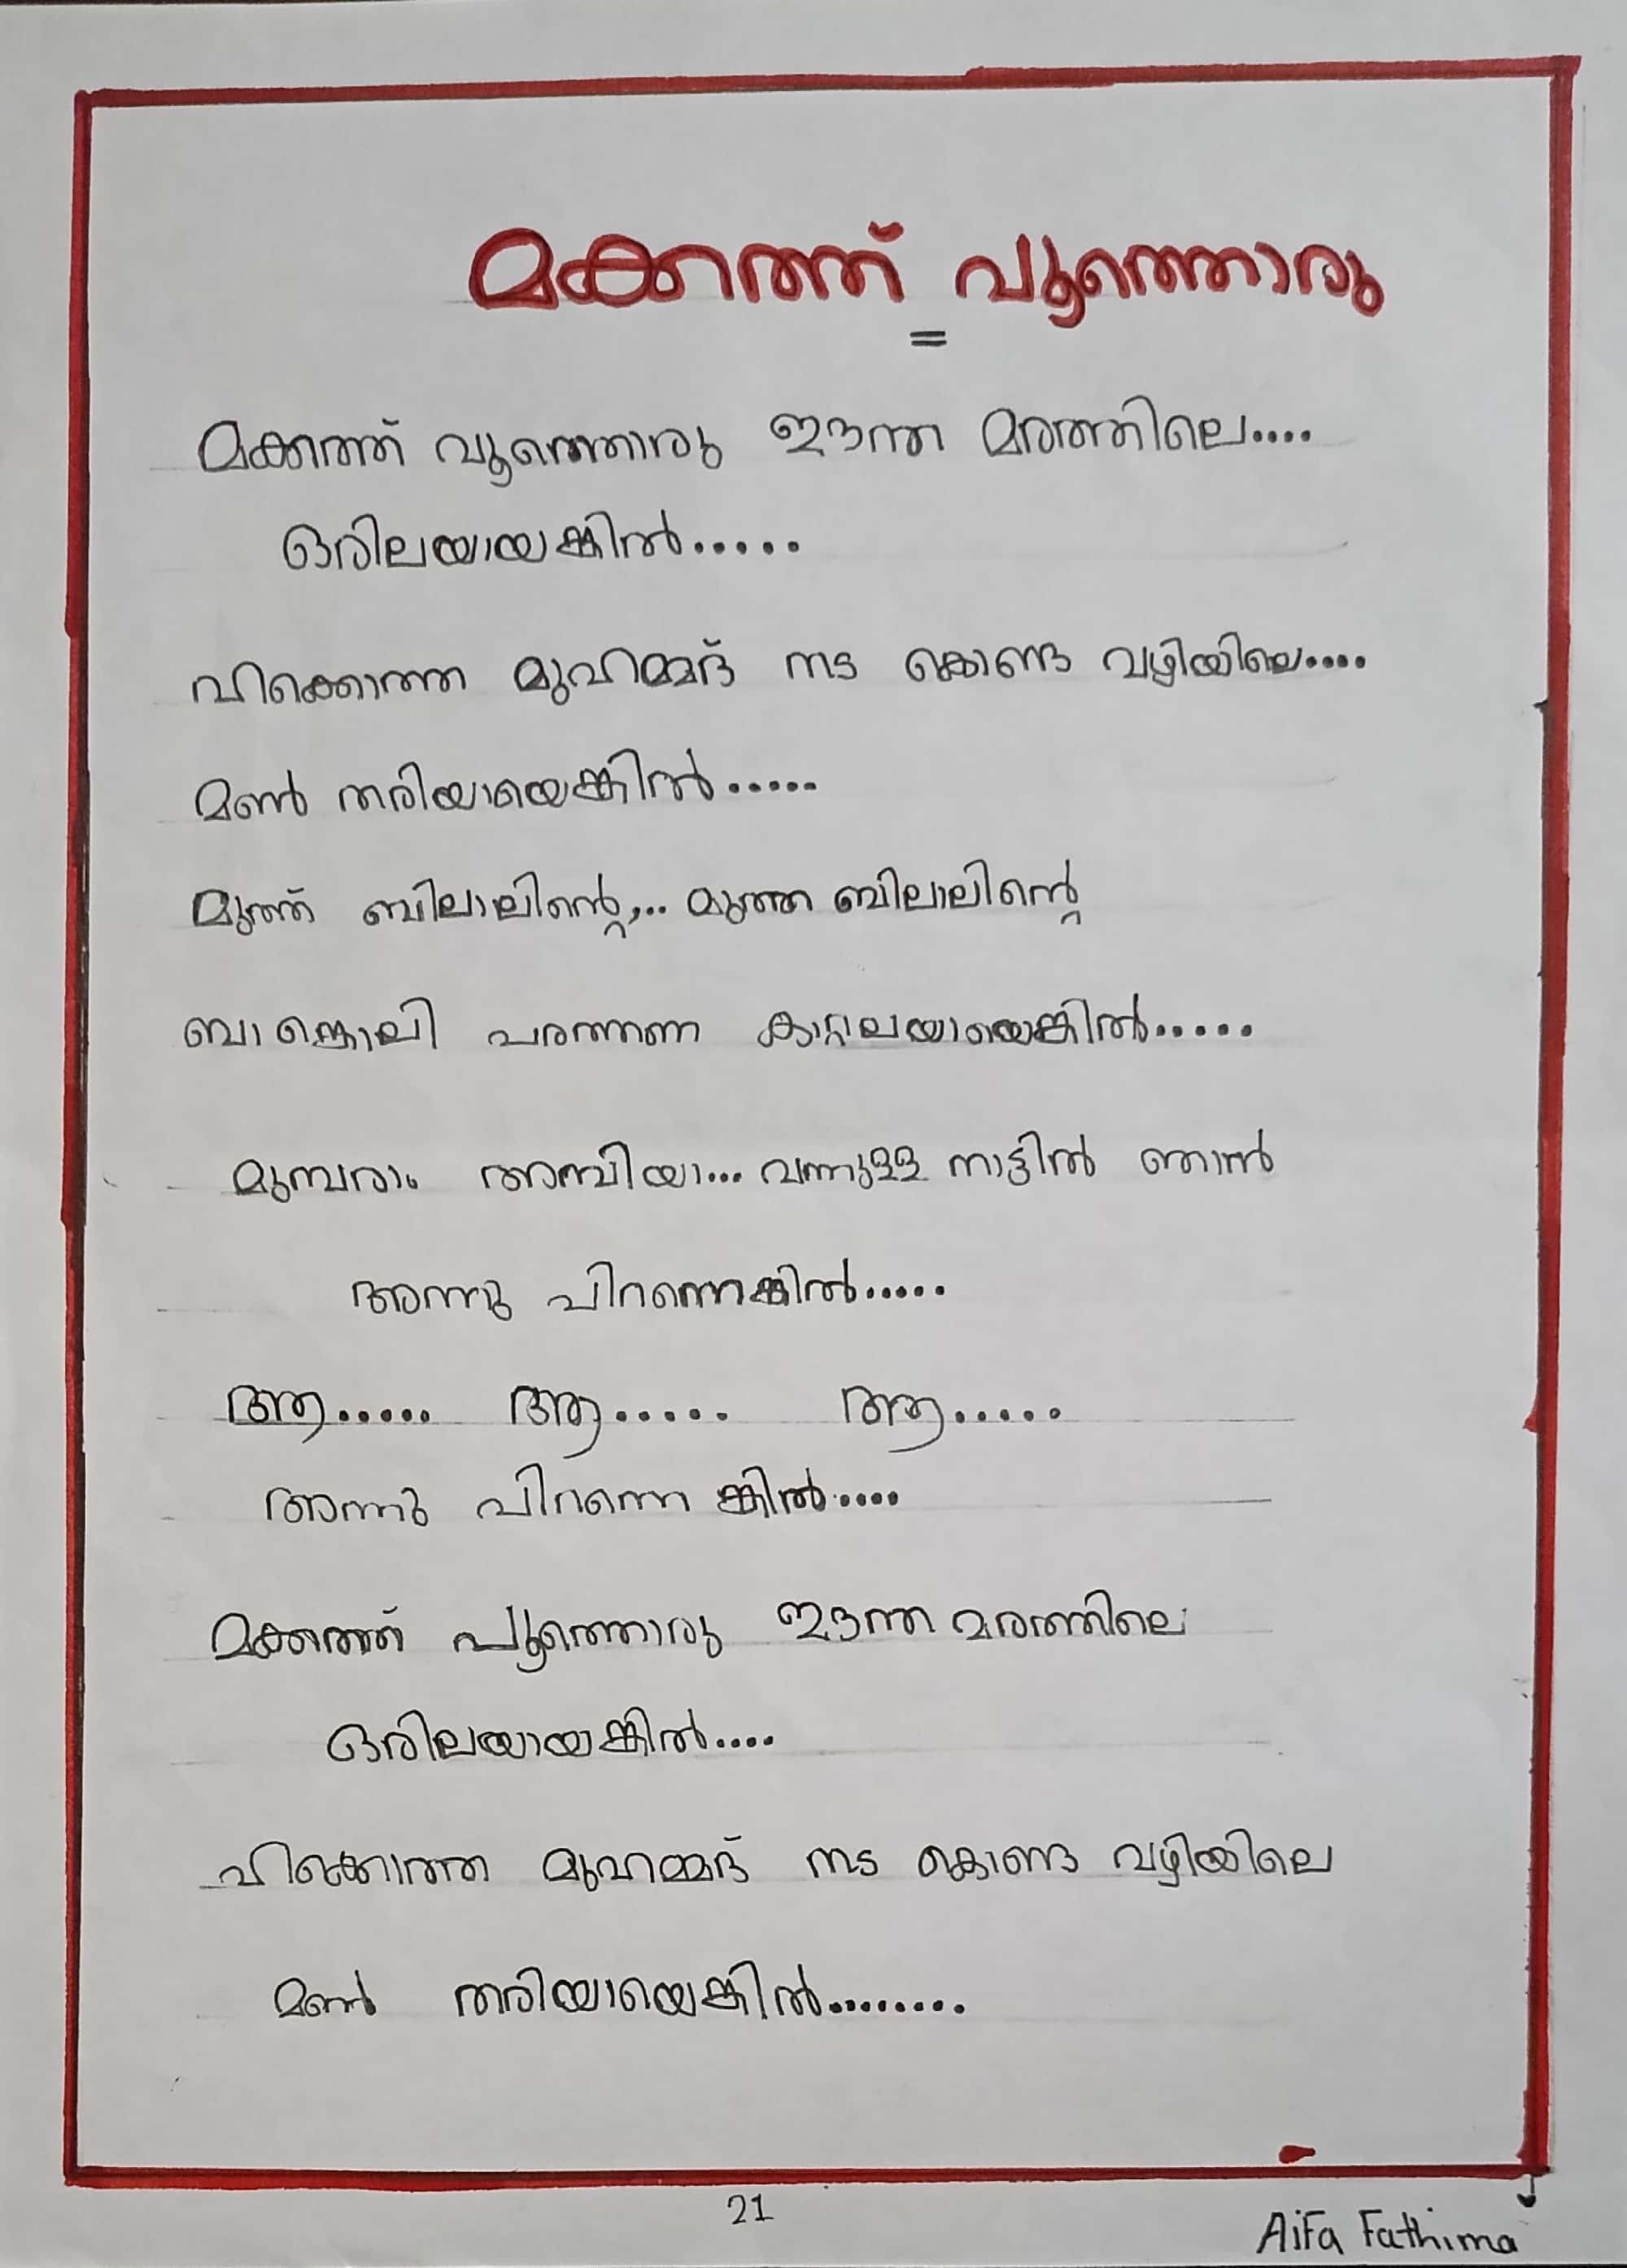 മക്കത്ത് പൂത്തൊരു
=
മക്കത്ത് പൂത്തൊരു ഈന്ത മരത്തിലെ....
ഒരിലയായങ്കിൽ.....
പിരിക്കൊത്ത മുഹമ്മദ് നട കൊണ്ട വഴിയിലെ....
മൺ തരിയായെങ്കിൽ.....
മുത്ത് ബിലാലിന്റെ,.. മുത്ത ബിലാലിന്റെ
ബാങ്കൊലി പരത്തണ കാറ്റലയായെങ്കിൽ.....
മുമ്പരാം അമ്പിയാ... വന്നുള്ള നാട്ടിൽ ഞാൻ
അന്നു പിറന്നെങ്കിൽ.....
ആ..... ആ..... ആ.....
അന്നു പിറന്നെ ങ്കിൽ.....
മക്കത്ത് പൂത്തൊരു ഈന്ത മരത്തിലെ
ഒരിലയായങ്കിൽ....
മുഹമ്മദ് നട കൊണ്ട വഴിയിലെ
മൺ തരിയായെങ്കിൽ........
21
Aifa Fathima